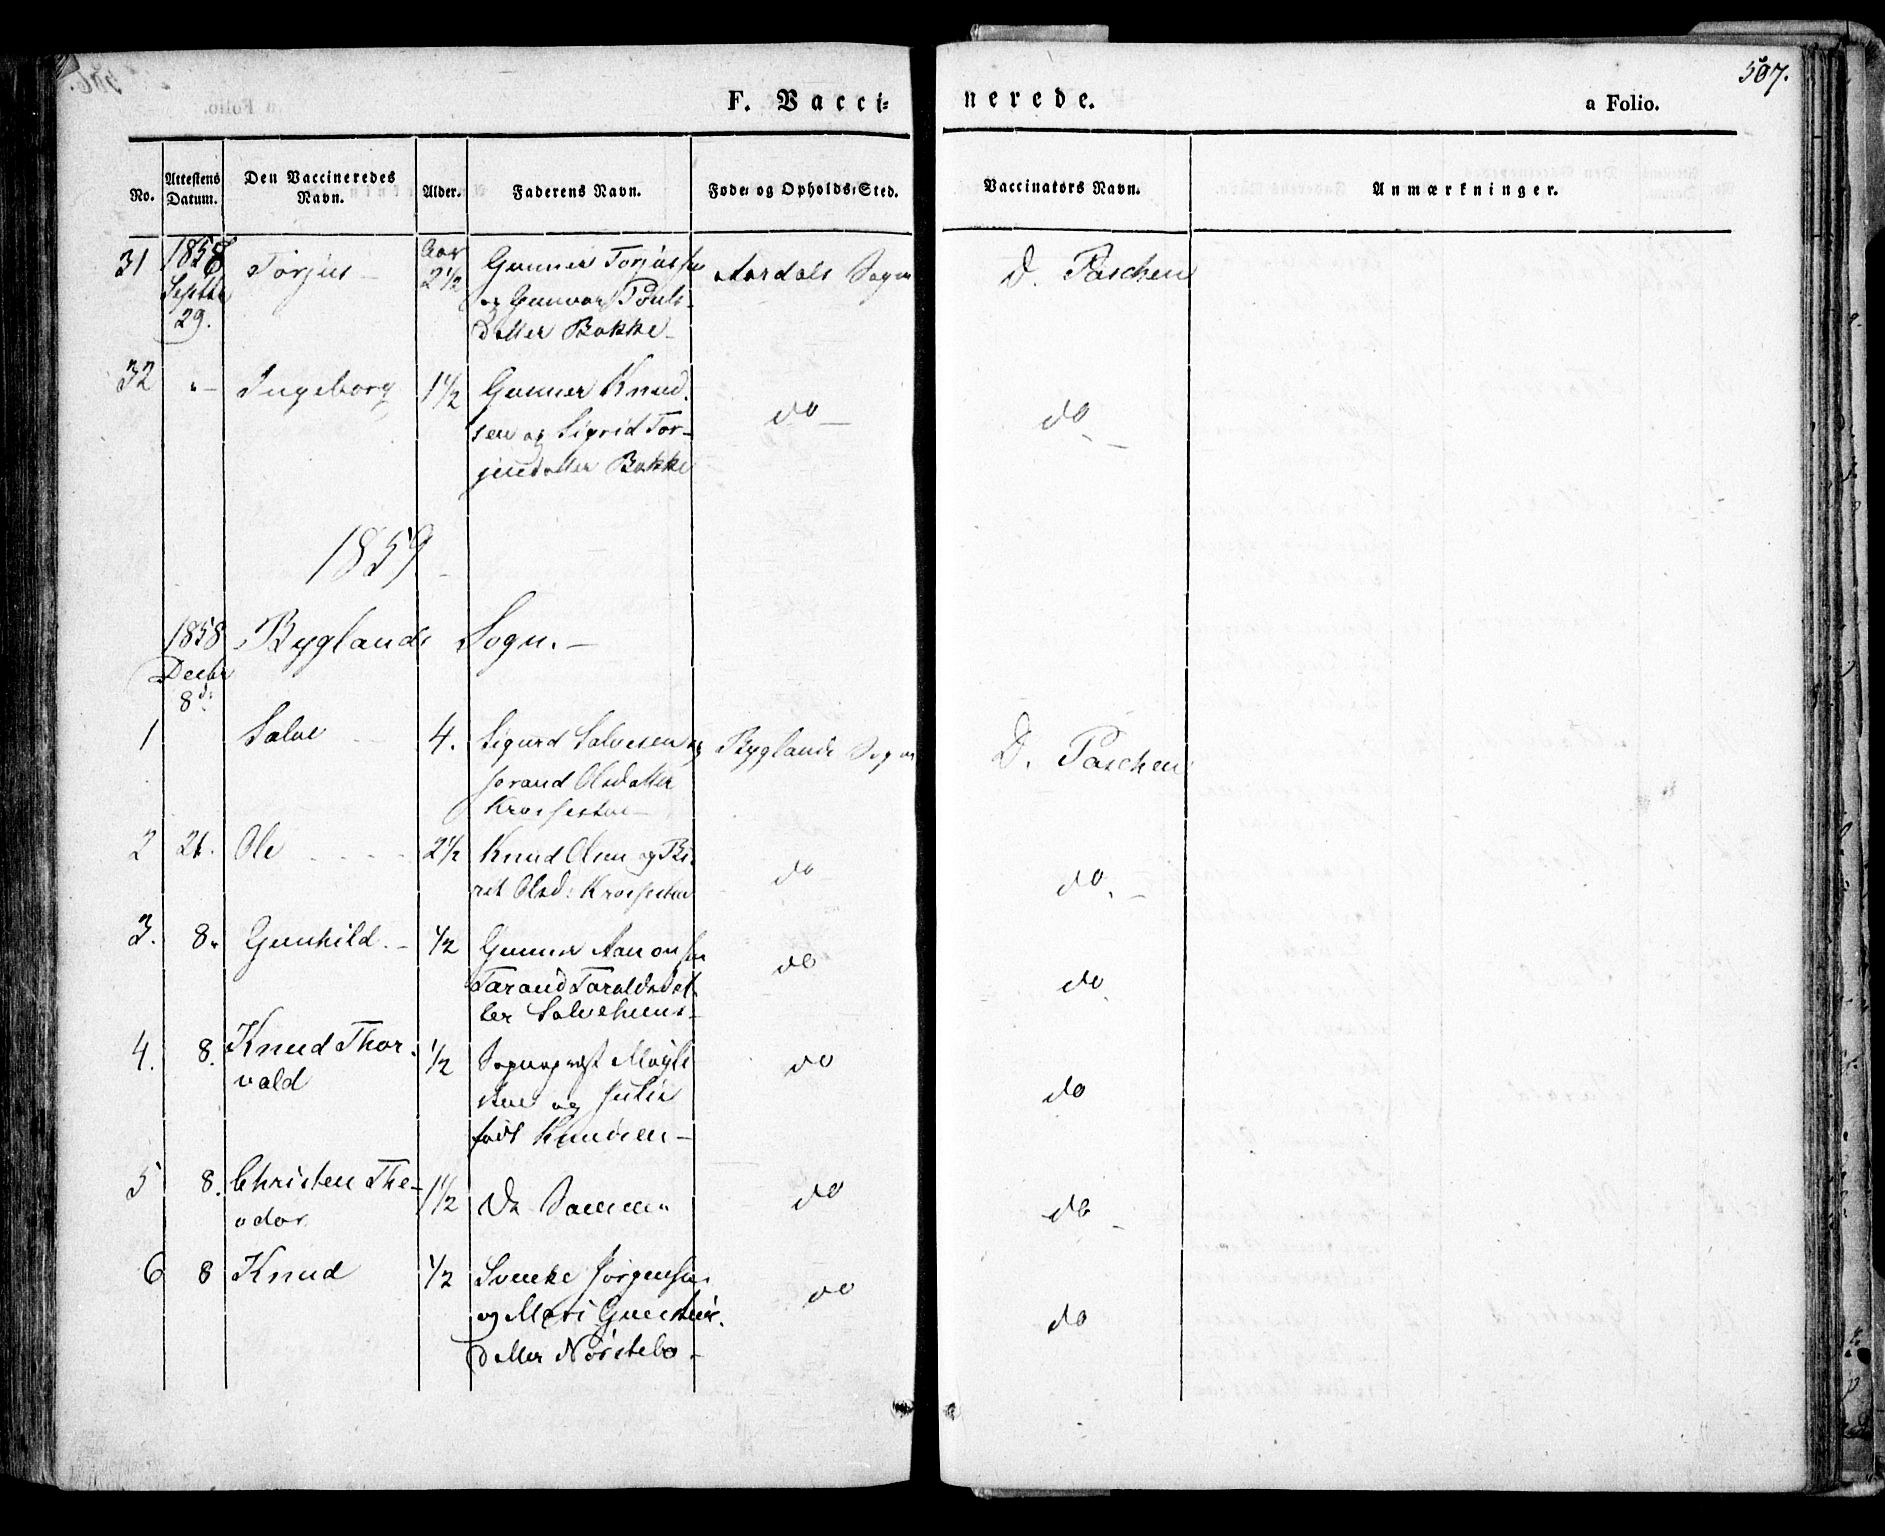 507.
F. Vacci=
nerede.
a Folio.
No.
Attestens Datum.
Den Vaccineredes Navn.
Alder.
Faderens Navn.
Føde- og Opholds-Sted.
Vaccinators Navn.
Anmærkninger.
31 1858 Torjus Aar 2½ Gunner Torjussen Aardals Sogn D. Paschen
Septbr og Gunvor Pouls-
29. datter Bakke
32 " Ingeborg 1½ Gunner Knud-
sen og Sigrid Tor- do do
jusdatter Bakke
1859
1858 Byglands Sogn.
Decbr
8d:
1 Salve 4. Sigurd Salvesen og Byglands Sogn D. Paschen
Jorand Olsdatter
2 21. Ole 2½ Knud Olsen og Bi-
rit Olsd: do do
3. 8. Gunhild ½ Gunner Aanonsen
Tarand Taraldsdat- do do
ter
4. 8. Knud Thor- ½ Sogneprest do
vald og Julie do
født Knudsen
5 8. Christen The- 1½ Do Samme do do
odor
6 8 Knud ½ Svenke Jørgensen
og Mari do do
datter Nørstebø